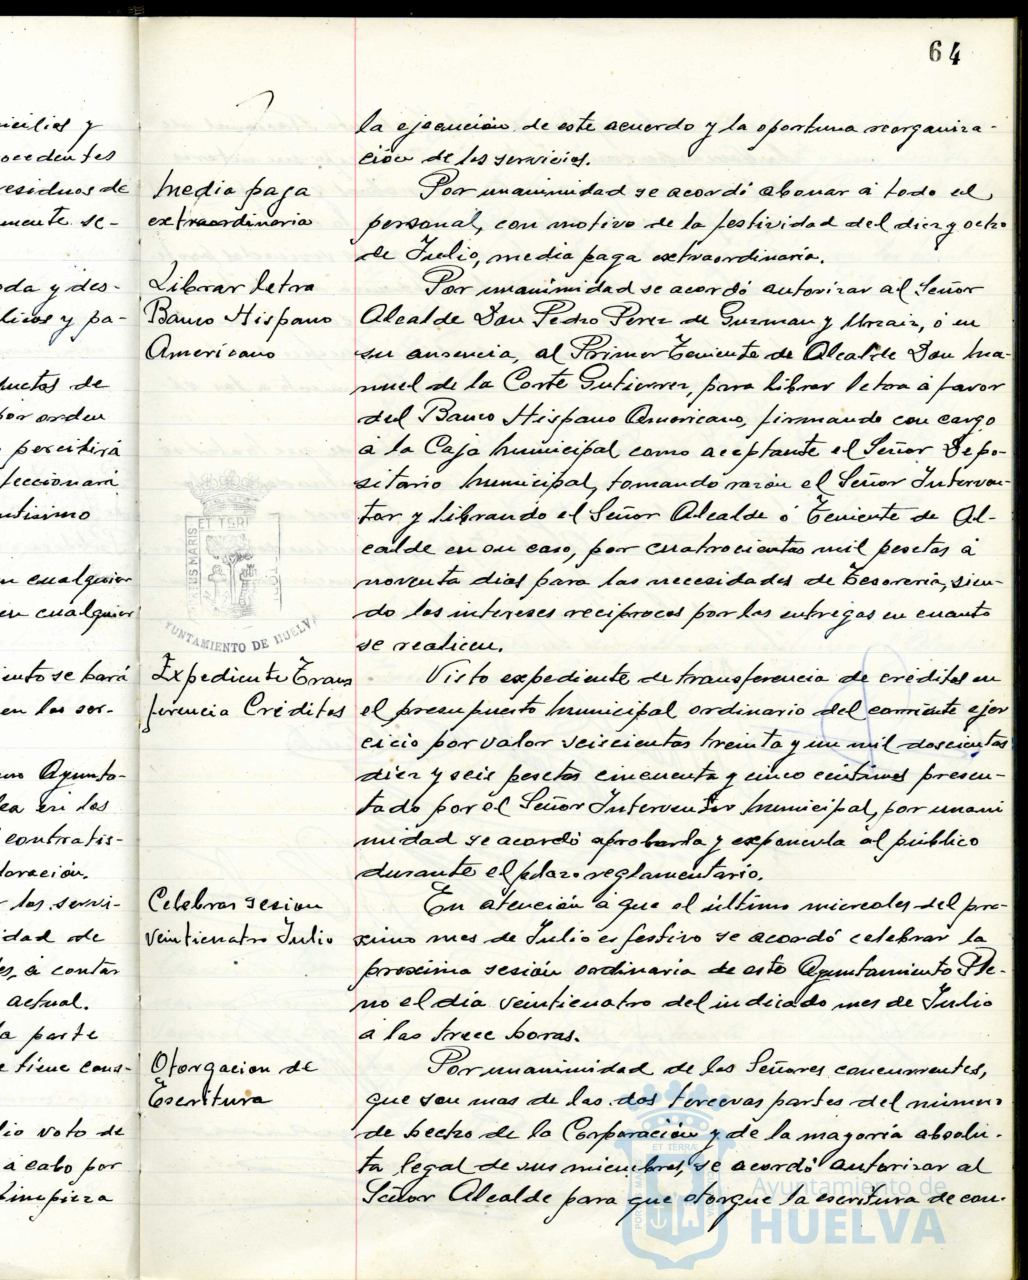 64
icilios y
ocedentes
residuos de
mente se-
oda y des-
licos y pa-
uctos de
por orden
percibirá
feccionará
ntisimo
en cualquier
en cualquier
iento se hará
en los ser-
mo Ayunta-
ea en los
contratis-
loración.
r los servi-
idad de
es, á contar
actual.
la parte
e tiene cons-
lio voto de
á cabo por
limpieza
la ejecución de este acuerdo y la oportuna reorganiza-
ción de los servicios.
Media paga
extraordinaria
Por unanimidad se acordó abonar á todo el
personal, con motivo de la festividad del diez y ocho
de Julio, media paga extraordinaria.
Librar letra
Banco Hispano
Americano
Por unanimidad se acordó autorizar al Señor
Alcalde Don Pedro Perez de Guzman y Urzaiz, ó en
su ausencia, al Primer Teniente de Alcalde Don Ma-
nuel de la Corte Gutierrez, para librar letra á favor
del Banco Hispano Americano, firmando con cargo
á la Caja Municipal como aceptante el Señor Depo-
sitario Municipal, tomando razón el Señor Interven-
tor y librando el Señor Alcalde ó Teniente de Al-
calde en su caso, por cuatrocientas mil pesetas á
noventa dias para las necesidades de Tesoreria, sien-
do los intereses reciprocos por las entregas en cuanto
se realicen.
ET TERRA
AYUNTAMIENTO DE HUELVA
Expediente Trans
ferencia Créditos
Visto expediente de transferencia de créditos en
el presupuesto Municipal ordinario del corriente ejer
cicio por valor seiscientas treinta y un mil doscientas
diez y seis pesetas cincuenta y cinco céntimos presen-
tado por el Señor Interventor Municipal, por unani
midad se acordó aprobarla y exponerla al público
durante el plazo reglamentario.
Celebrar sesion
veinticuatro Julio
En atención á que el último miercoles del pro-
ximo mes de Julio es festivo se acordó celebrar la
proxima sesión ordinaria de este Ayuntamiento Ple-
no el dia veinticuatro del indicado mes de Julio
á las trece horas.
Otorgacion de
Escritura
Por unanimidad de los Señores concurrentes,
que son mas de las dos terceras partes del número
de hecho de la Corporación y de la mayoria absolu-
ta legal de sus miembros, se acordó autorizar al
Señor Alcalde para que otorgue la escritura de con-
ET TERRA
Ayuntamiento de
HUELVA